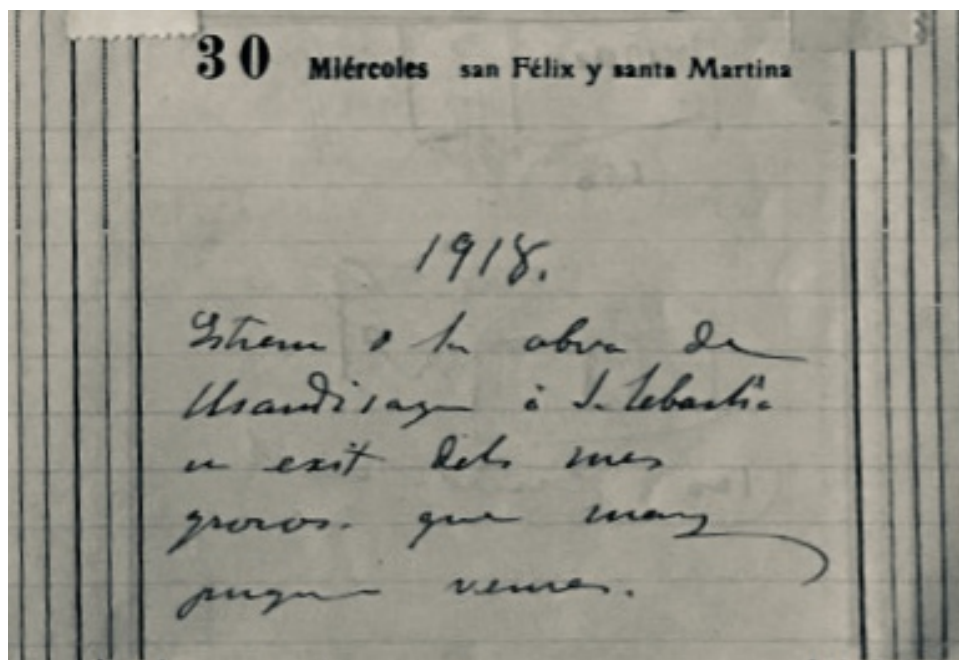 30 Miércoles san Félix y santa Martina
1918.
Estrem la obra de
Usandisaga á S. Sebastiá
un exit dels mes
grosos. que may
puguen veures.